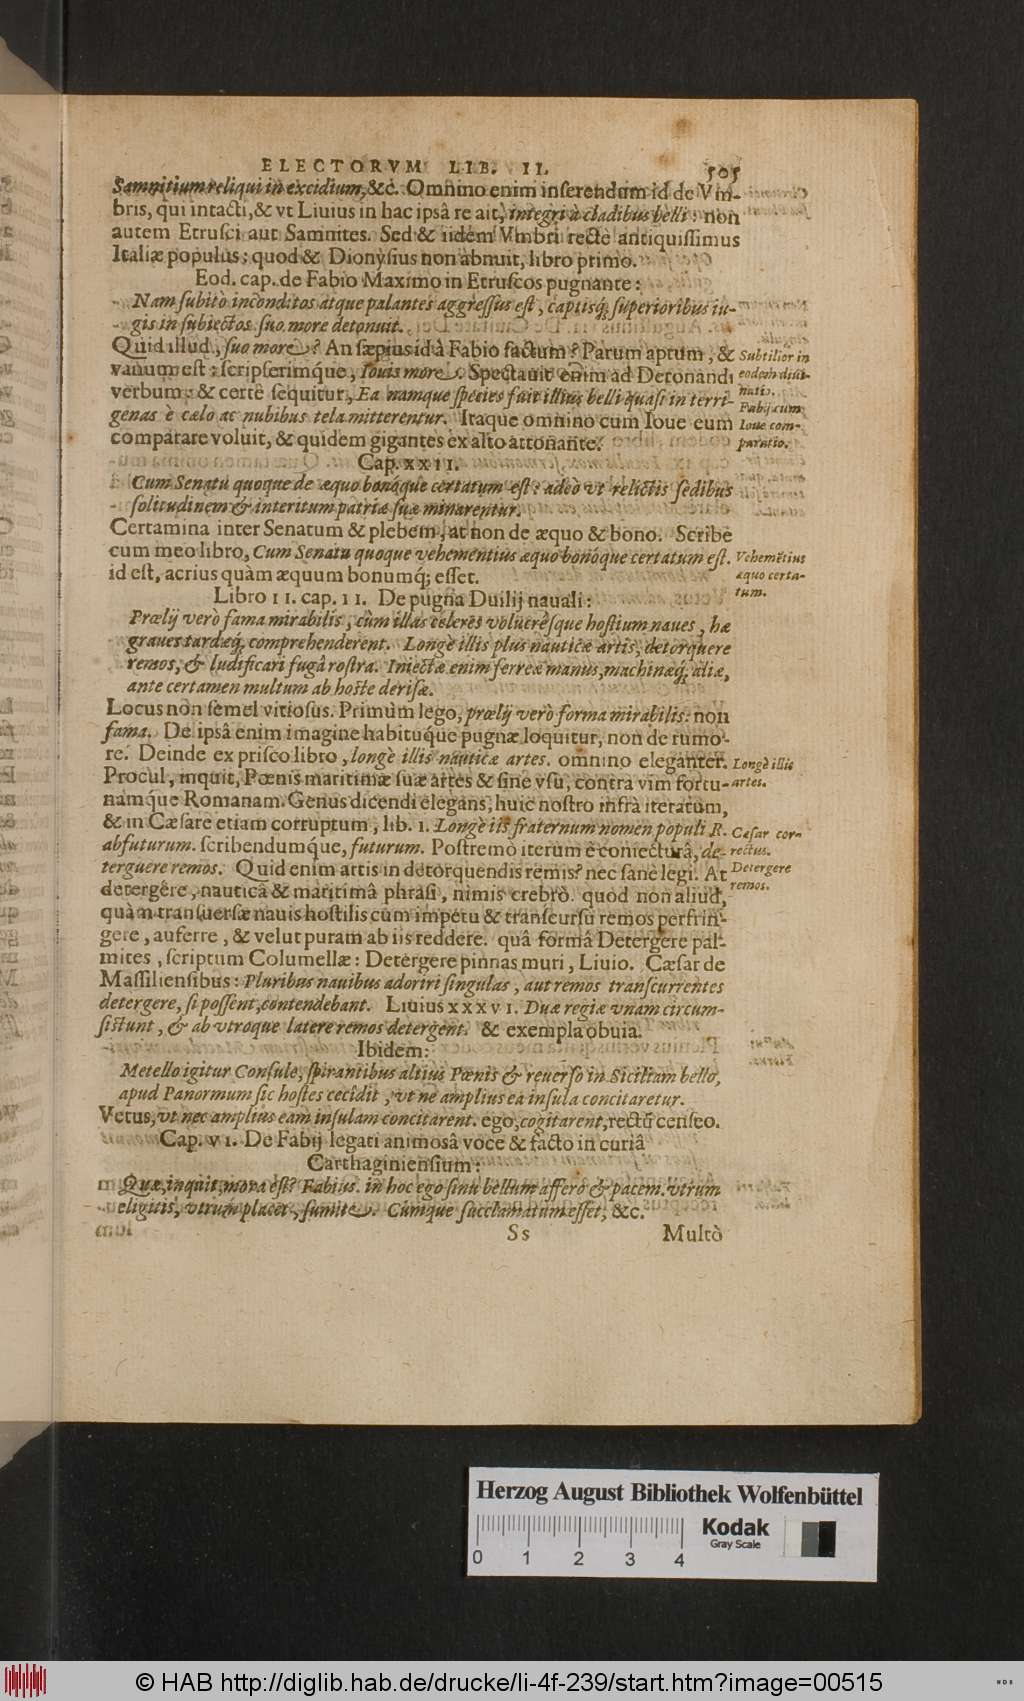 ELECTORVM LIB. II. 505
Samnitium reliqui in excidium, &c. Omnino enim inserendum id de Vm-
bris, qui intacti, & vt Liuius in hac ipsâ re ait, integri à cladibus belli: non
autem Etrusci aut Samnites. Sed & iidem Vmbri rectè antiquissimus
Italiæ populus; quod & Dionysius non abnuit, libro primo.
Eod. cap. de Fabio Maximo in Etruscos pugnante:
Nam subitò inconditos atque palantes aggressus est, captisq; superioribus iu-
gis in subiectos suo more detonuit.
Quid illud, suo more? An sæpius id à Fabio factum? Parum aptum, &
vanum est: scripserimque, Iouis more. Spectauit enim ad Detonandi
verbum: & certè sequitur, Ea namque species fuit illius belli quasi in terri-
genas è cælo ac nubibus tela mitterentur. Itaque omnino cum Ioue eum
comparare voluit, & quidem gigantes ex alto attonante.
Subtilior in
eodem diui-
natio.
Fabij cum
Ioue com-
paratio.
Cap. XXII.
Cum Senatu quoque de æquo bonóque certatum est: adeò vt relictis sedibus
solitudinem & interitum patriæ suæ minarentur.
Certamina inter Senatum & plebem, at non de æquo & bono. Scribe
cum meo libro, Cum Senatu quoque vehementius æquo bonóque certatum est.
id est, acrius quàm æquum bonumq; esset.
Vehemẽtius
æquo certa-
tum.
Libro II. cap. II. De pugna Duilij nauali:
Prælij verò fama mirabilis, cùm illas celeres volucrésque hostium naues, hæ
graues tardæq; comprehenderent. Longè illis plus nauticæ artis, detorquere
remos, & ludificari fugâ rostra. Iniectæ enim ferreæ manus, machinæq; aliæ,
ante certamen multum ab hoste derisæ.
Locus non semel vitiosus. Primùm lego, prælij verò forma mirabilis: non
fama. De ipsâ enim imagine habitúque pugnæ loquitur, non de rumo-
re. Deinde ex prisco libro, longè illis nauticæ artes. omnino eleganter.
Procul, inquit, Pœnis maritimæ suæ artes & sine vsu, contra vim fortu-
namque Romanam. Genus dicendi elegans, huic nostro infrà iteratum,
& in Cæsare etiam corruptum, lib. 1. Longè iis fraternum nomen populi R.
abfuturum. scribendumque, futurum. Postremò iterum è coniecturâ, de-
terguere remos. Quid enim artis in detorquendis remis? nec sanè legi. At
detergére, nauticâ & maritimâ phrasi, nimis crebrò. quod non aliud,
quàm transuersæ nauis hostilis cum impetu & transcursu remos perfrin-
gere, auferre, & velut puram ab iis reddere. quâ formâ Detergere pal-
mites, scriptum Columellæ: Detergere pinnas muri, Liuio. Cæsar de
Massiliensibus: Pluribus nauibus adoriri singulas, aut remos transcurrentes
detergere, si possent, contendebant. Liuius XXXVI. Duæ regiæ vnam circum-
sistunt, & ab vtroque latere remos detergent. & exempla obuia.
Longè illis
artes.
Cæsar cor-
rectus.
Detergere
remos.
Ibidem:
Metello igitur Consule, spirantibus altius Pœnis & reuerso in Siciliam bello,
apud Panormum sic hostes cecîdit, vt ne amplius ea insula concitaretur.
Vetus, vt nec amplius eam insulam concitarent. ego, cogitarent, rectũ censeo.
Cap. VI. De Fabij legati animosâ voce & facto in curiâ
Carthaginiensium:
Quæ, inquit, mora est? Fabius. in hoc ego sinu bellum affero & pacem. vtrum
eligitis, vtrum placet, sumite. Cùmque succlamatum esset, &c.
Ss Multò
Herzog August Bibliothek Wolfenbüttel
Kodak
Gray Scale
0 1 2 3 4
© HAB http://diglib.hab.de/drucke/li-4f-239/start.htm?image=00515